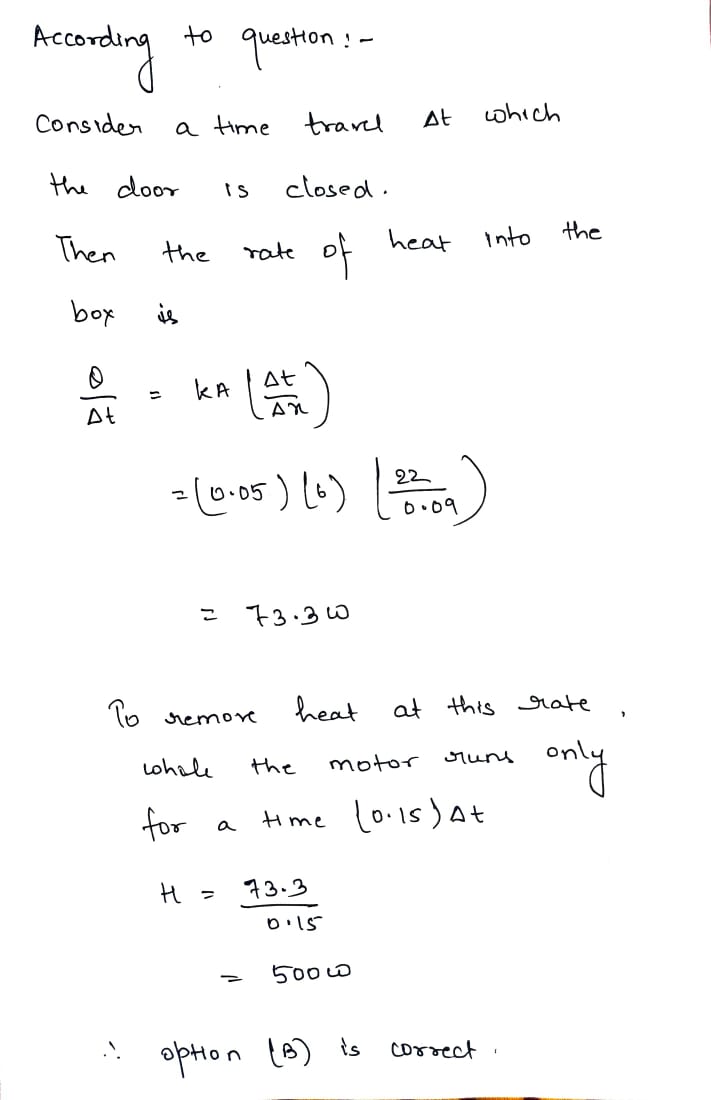 According to question :-
Consider a time travel Δt which
the door is closed.
Then the rate of heat into the
box is
Q/Δt = kA (Δt/Δx)
= (0.05) (6) (22/0.09)
= 73.3 W
To remove heat at this rate,
whole the motor runs only
for a time (0.15) Δt
H = 73.3/0.15
= 500 W
∴ option (B) is correct.